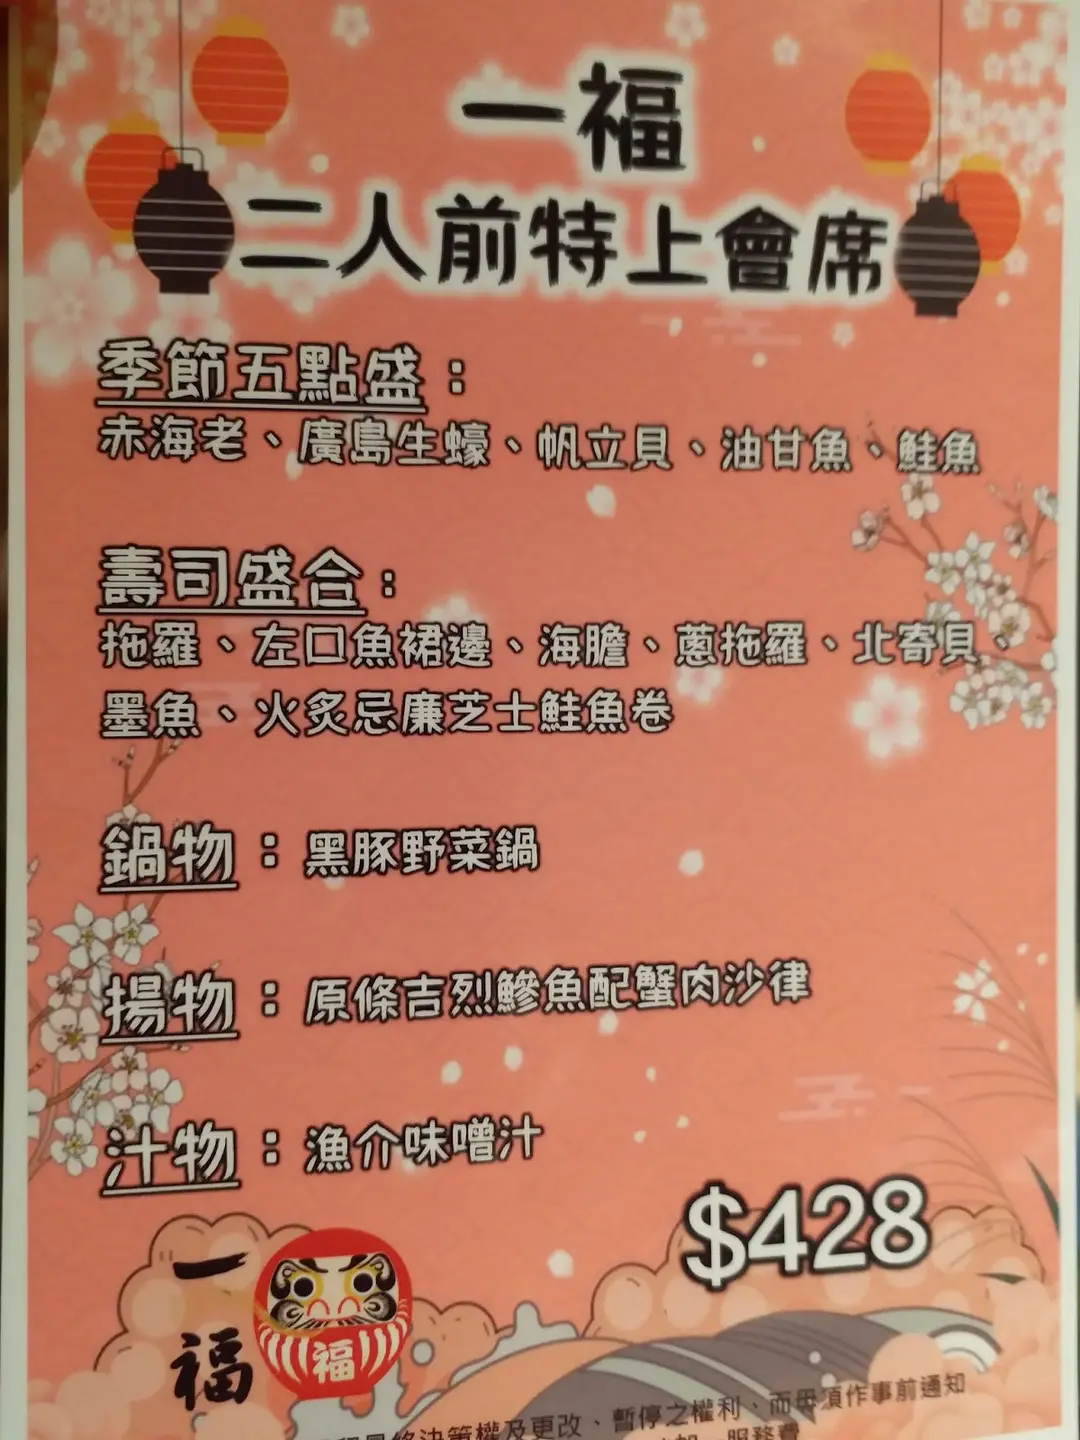 一福
二人前特上會席
季節五點盛：
赤海老、廣島生蠔、帆立貝、油甘魚、鮭魚
壽司盛合：
拖羅、左口魚裙邊、海膽、蔥拖羅、北寄貝、
墨魚、火炙忌廉芝士鮭魚卷
鍋物：黑豚野菜鍋
揚物：原條吉烈鱔魚配蟹肉沙律
汁物：漁介味噌汁
$428
一福
福
決策權及更改、暫停之權利、而毋須作事前通知
服務費